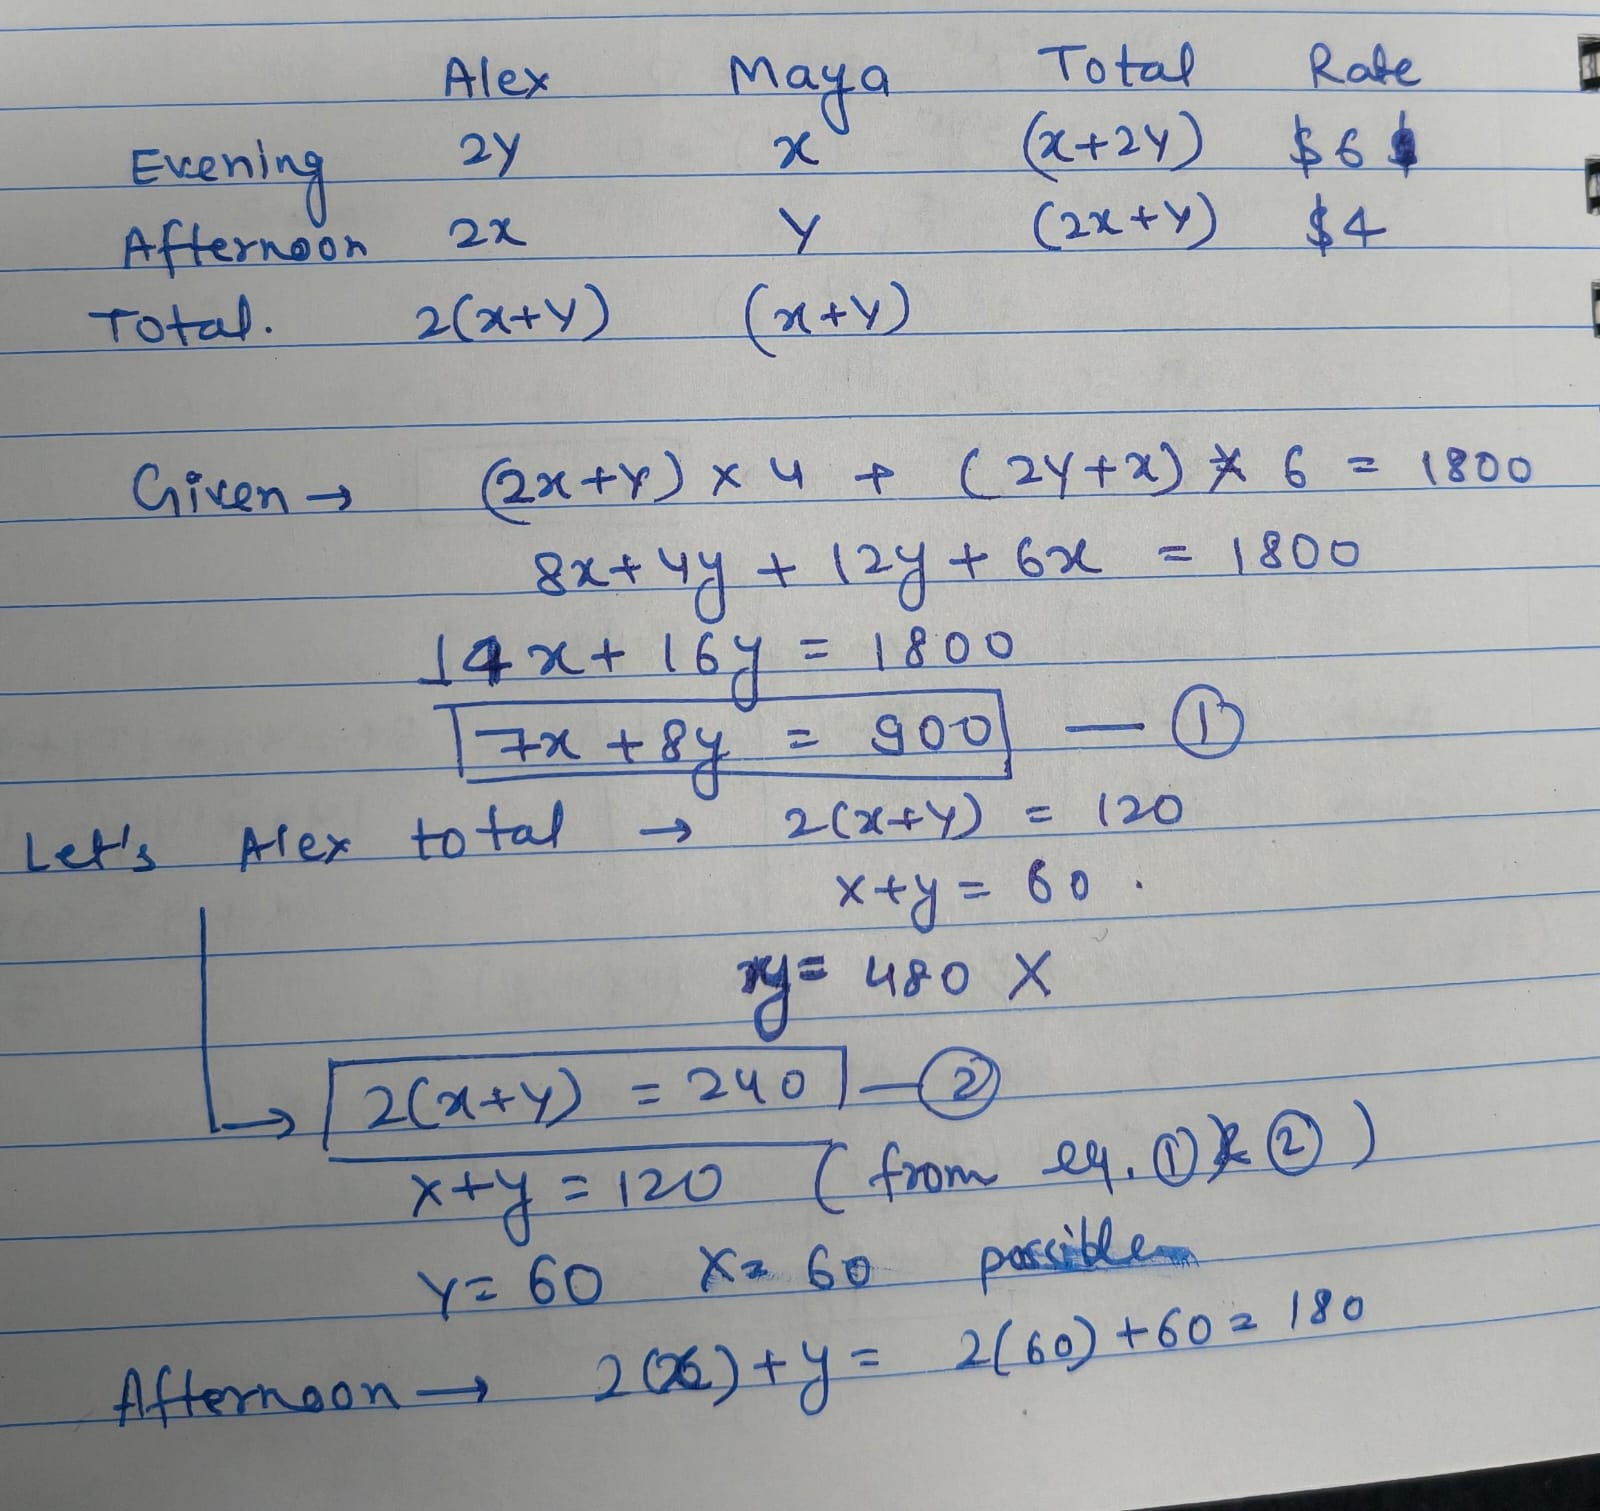 Alex Maya Total Rate
Evening 2y x (x+2y) $6
Afternoon 2x y (2x+y) $4
Total. 2(x+y) (x+y)
Given → (2x+y) × 4 + (2y+x) * 6 = 1800
8x+4y + 12y + 6x = 1800
14x + 16y = 1800
7x + 8y = 900 — ①
Let's Alex total → 2(x+y) = 120
x+y = 60 .
xy = 480 X
→ 2(x+y) = 240 — ②
x+y = 120 (from eq. ① & ②)
y = 60 x = 60 possible
Afternoon → 2(x)+y = 2(60)+60 = 180